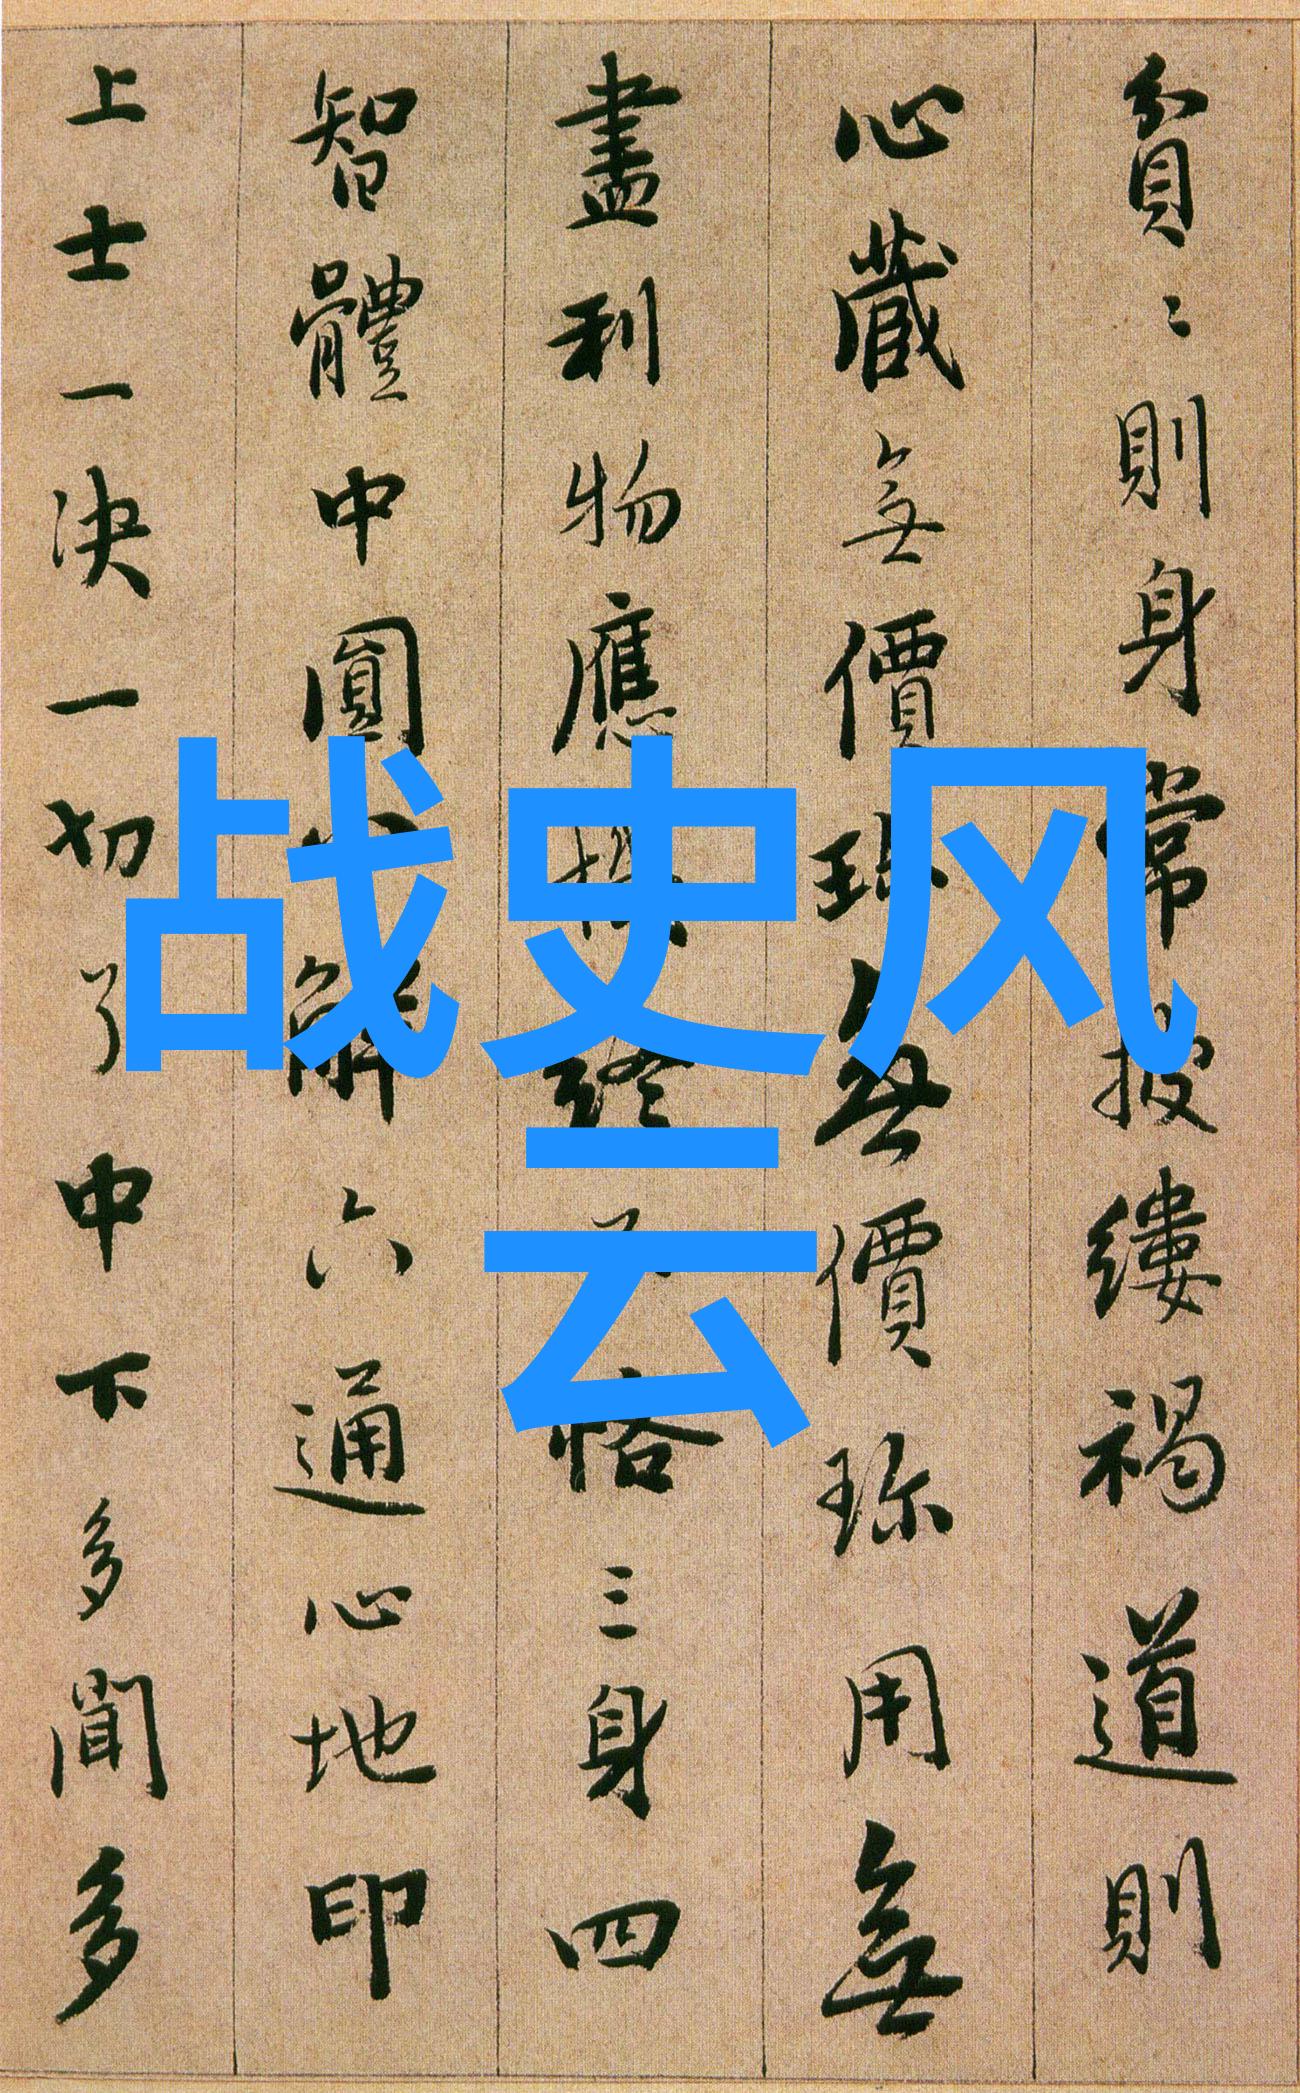 战史风
云
貧〻則身常披縷褐道則
心藏無價珎無價珎用無
盡利物應終恪三身四
智體中圓解六通心地印
上士一决一切了中下多聞多